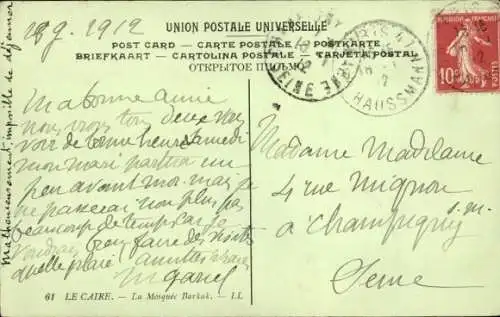 18 9. 1912
UNION POSTALE UNIVERSELLE
POST CARD — CARTE POSTALE — POSTKARTE
BRIEFKAART — CARTOLINA POSTALE — TARJETA POSTAL
ОТКРЫТОЕ ПИСЬМО
PARIS
HAUSSMANN
SEINE
10
POSTES
Malheureusement, impossible de déjeuner
Ma bonne amie
nous irons tous deux vous
voir de bonne heure samedi
mon mari partira un
peu avant moi. mais je
ne passerai non plus pas
beaucoup de temps car je
voudrais bien faire des visites
quelle plaie amitiés
Madame Madelaine
4 rue Mignon
à Champigny
s.m.
Seine
61 LE CAIRE. — La Mosquée Barkuk. — LL